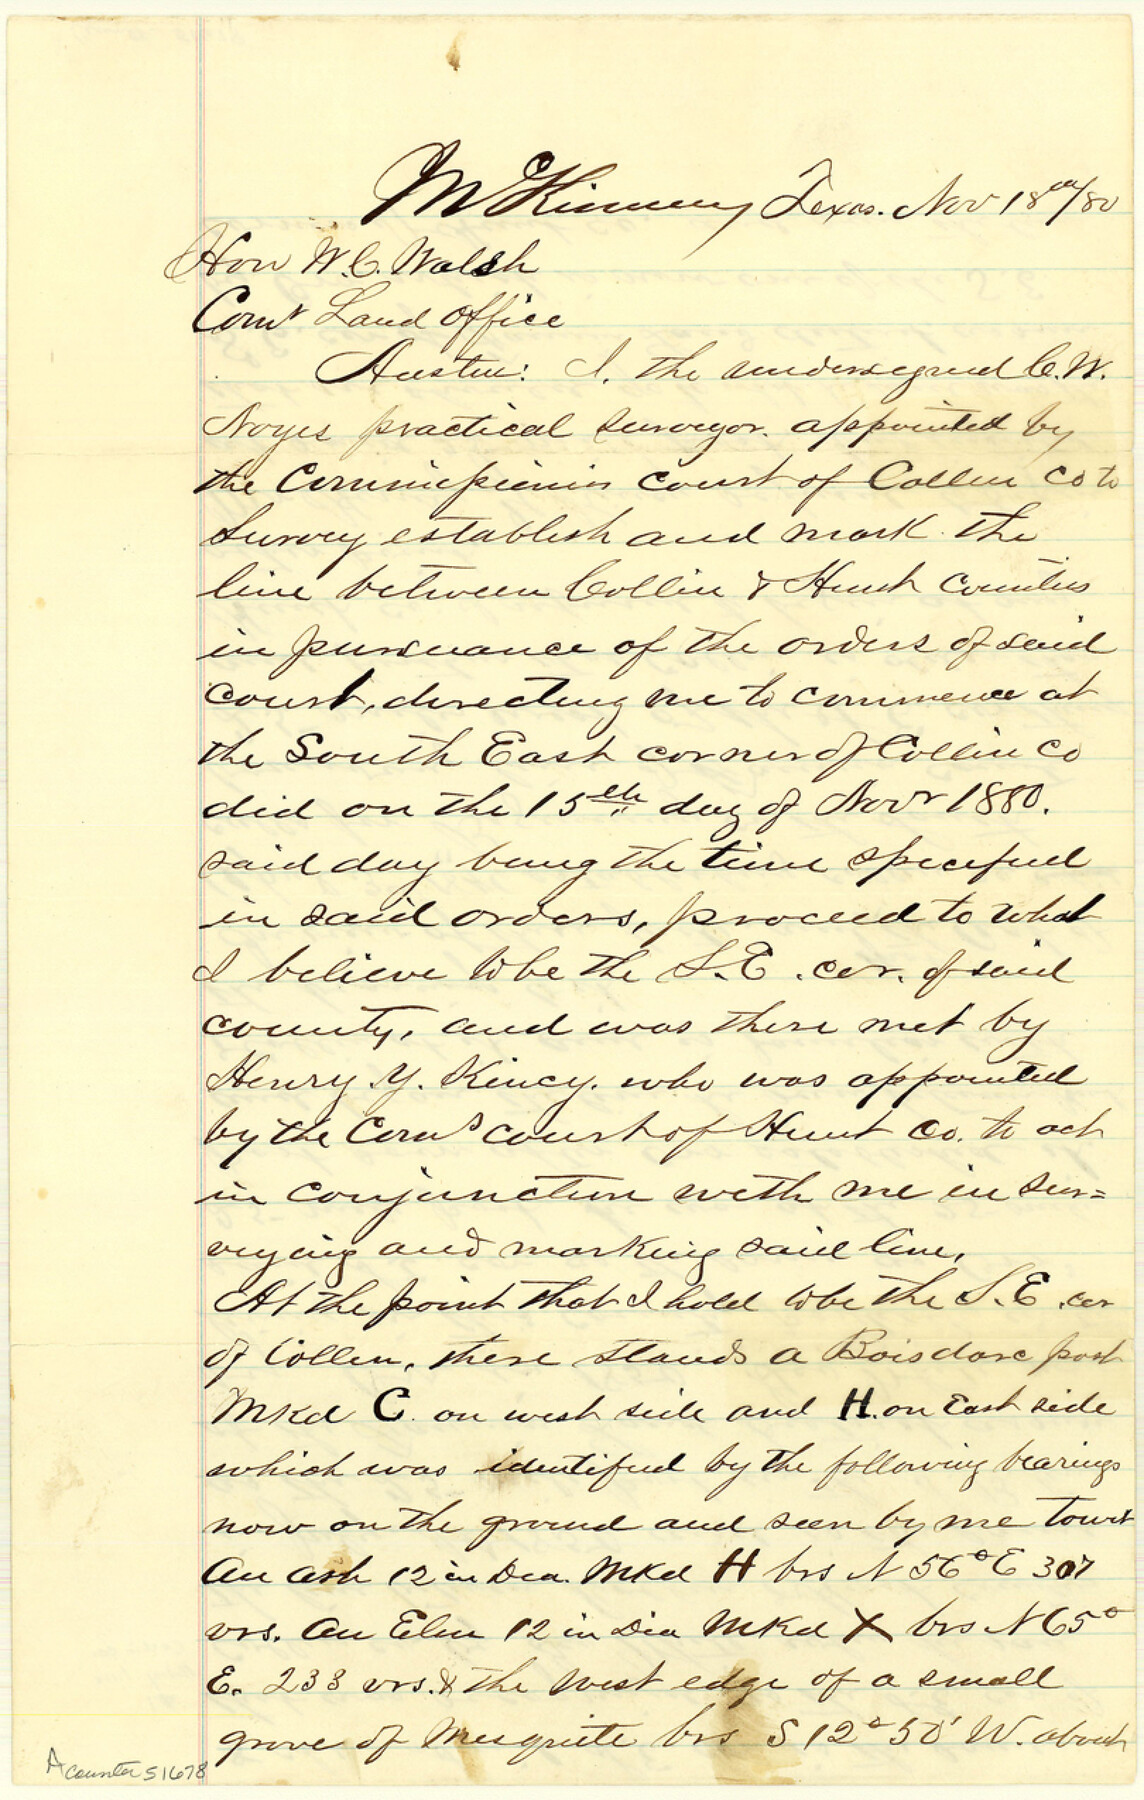 McKinney Texas. Nov 18th/80
Hon W.C. Walsh
Comr Land office
Austin: I, the undersigned C.W.
Noyes practical surveyor. appointed by
the Commissioners court of Collin Co to
Survey establish and mark the
line between Collin & Hunt Counties
in pursuance of the orders of said
court, directing me to commence at
the South East corner of Collin Co
did on the 15th day of Novr 1880.
said day being the time specified
in said orders, proceed to what
I believe to be the S.E. cor. of said
county, and was there met by
Henry Y. Kincy. who was appointed
by the Coms court of Hunt Co. to act
in conjunction with me in sur=
veying and marking said line.
At the point that I hold to be the S.E. cor
of Collin, there stands a Boisdarc post
Mkd C. on west side and H. on East side
which was identified by the following bearings
now on the ground and seen by me towit
An ash 12 in Dia. Mkd H brs N 56° E 307
vrs. An Elm 12 in Dia Mkd X brs N 65°
E. 233 vrs. & the west edge of a small
grove of Mesquite brs S 12° 50' W. about
counter 51678